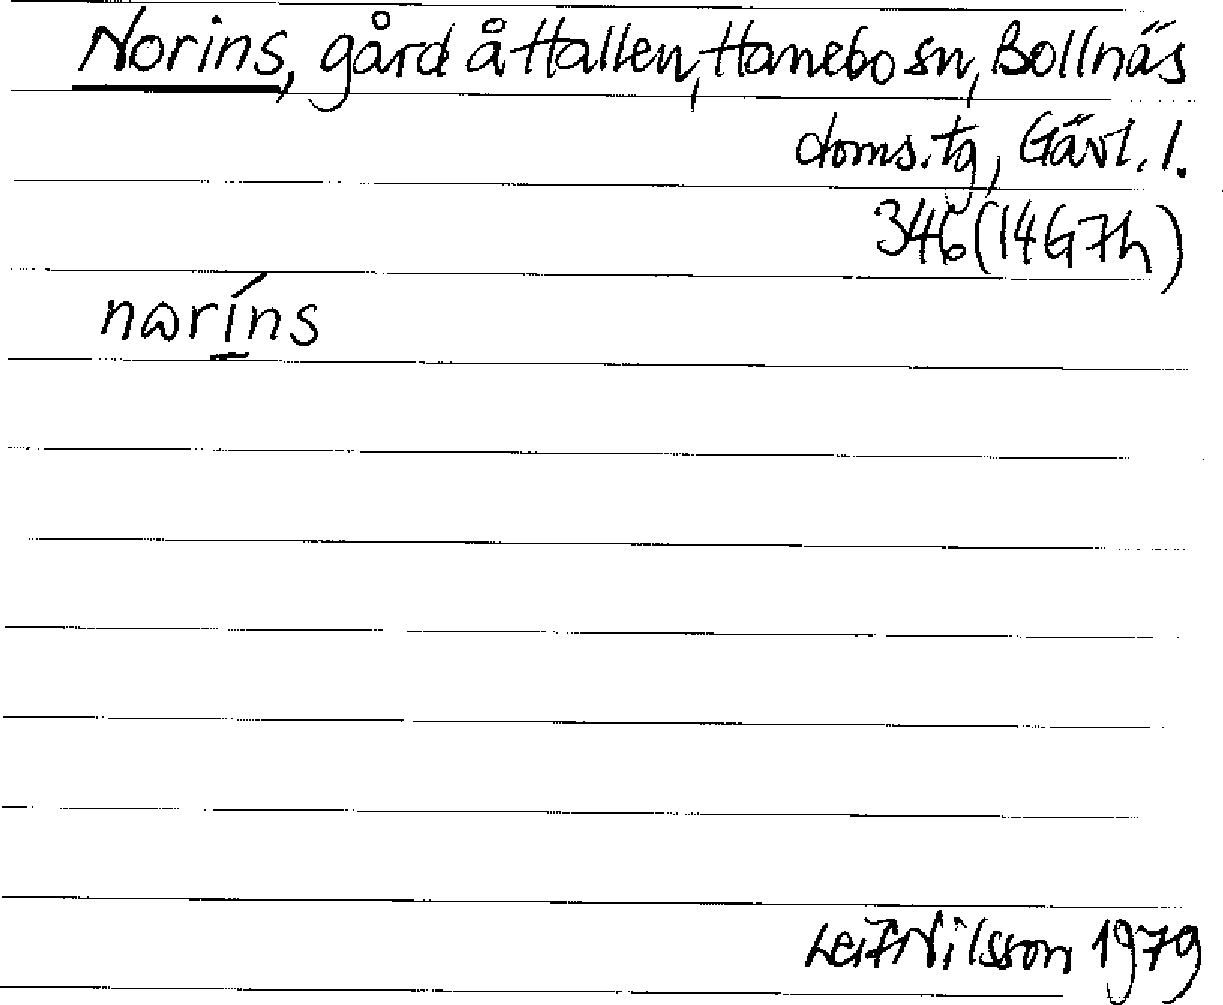 Norins, gård å Hallen, Hanebo sn, Bollnäs
doms.tg, Gävl. l.
346 (14G7h)
nɷríns
Leif Nilsson 1979